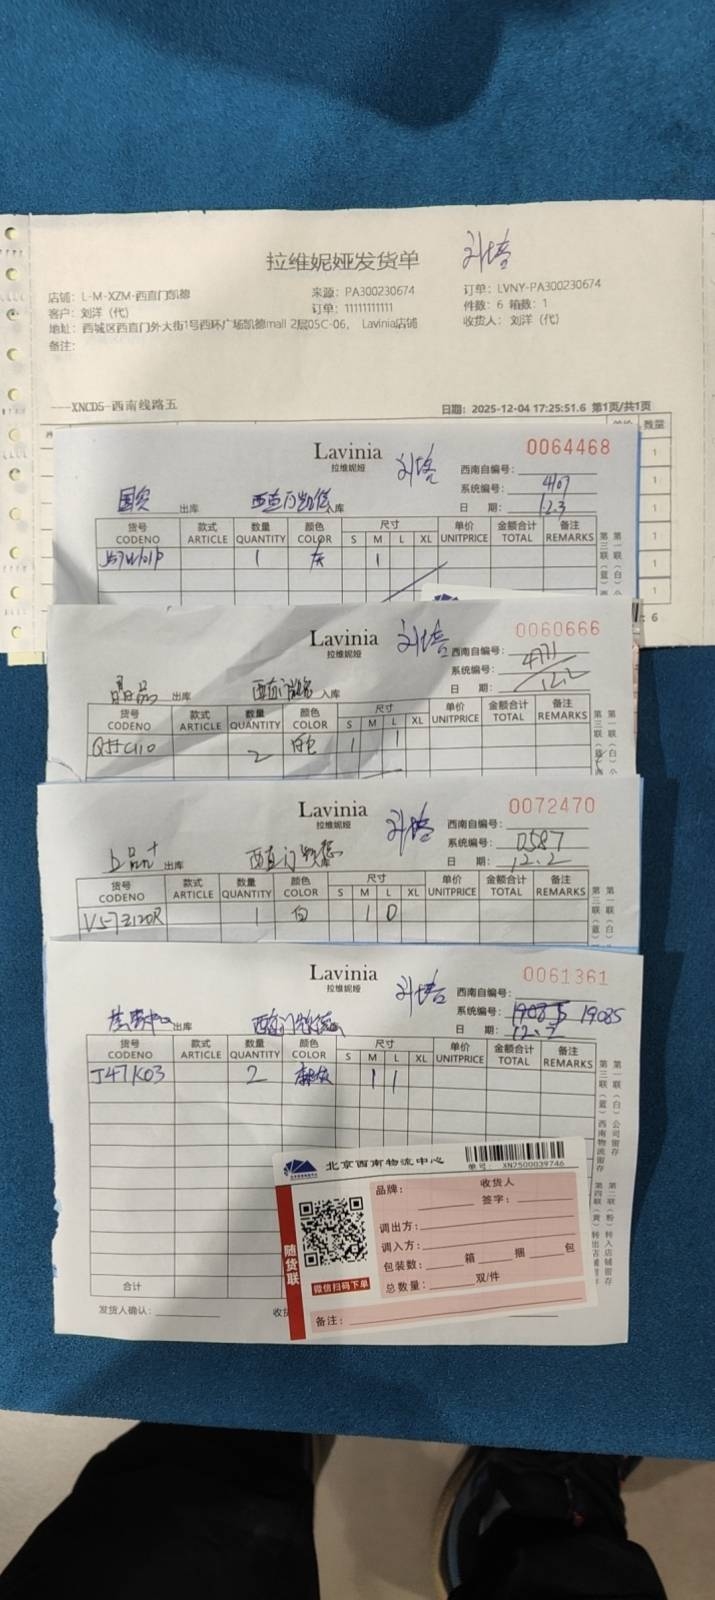 拉维妮娅发货单 刘培
店铺：L-M-XZM-西直门凯德 来源：PA300230674 订单：LVNY-PA300230674
客户：刘洋（代） 订单：11111111111 件数：6 箱数：1
地址：西城区西直门外大街1号西环广场凯德mall 2层05C-06， Lavinia店铺 收货人：刘洋（代）
备注：
---XNCD5-西南线路五 日期：2025-12-04 17:25:51.6 第1页/共1页
数量
1
1
1
1
1
1
6
Lavinia 刘培 0064468
拉维妮娅 西南自编号：
国贸 出库 西直门凯德 入库 系统编号：4107
日 期：12.3
货号 款式 数量 颜色 尺寸 单价 金额合计 备注
CODENO ARTICLE QUANTITY COLOR S M L XL UNITPRICE TOTAL REMARKS
1 灰 1
Lavinia 刘培 0060666
拉维妮娅 西南自编号：
出库 西直门凯德 入库 系统编号：4771
日 期：12.2
货号 款式 数量 颜色 尺寸 单价 金额合计 备注
CODENO ARTICLE QUANTITY COLOR S M L XL UNITPRICE TOTAL REMARKS
Q55C110 2 白色 1 1
Lavinia 刘培 0072470
拉维妮娅 西南自编号：
上品+ 出库 西直门凯德 入库 系统编号：0587
日 期：12.2
货号 款式 数量 颜色 尺寸 单价 金额合计 备注
CODENO ARTICLE QUANTITY COLOR S M L XL UNITPRICE TOTAL REMARKS
V57Z120R 1 白 1 0
Lavinia 刘培 0061361
拉维妮娅 西南自编号：
出库 西直门凯德 系统编号：19085 19085
日 期：12.2
货号 款式 数量 颜色 尺寸 单价 金额合计 备注
CODENO ARTICLE QUANTITY COLOR S M L XL UNITPRICE TOTAL REMARKS
J47K03 2 麻灰 1 1
第一联（白）公司留存 第二联（粉）转入店铺留存
第三联（蓝）西南物流留存 第四联（黄）转出店铺留存
合计
发货人确认： 收货
北京西南物流中心 单号：XN7500039746
随货联
微信扫码下单
品牌： 收货人
签字：
调出方：
调入方：
包装数： 箱 捆 包
总数量： 双/件
备注：